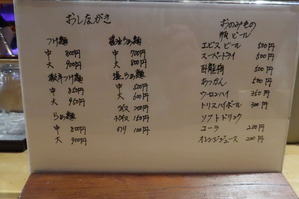 おしながき
つけ麺
中 800円
大 900円
辛つけ麺
中 850円
大 950円
らぁ麺
中 800円
大 900円
醤油らぁ麺
中 700円
大 800円
塩らぁ麺
中
大
のり 100円
おのみもの
ビール
エビスビール 500円
スーパードライ 500円
日本酒 500円
あつかん 500円
ウーロンハイ 350円
トリスハイボール 300円
ソフトドリンク
コーラ 200円
オレンジジュース 200円